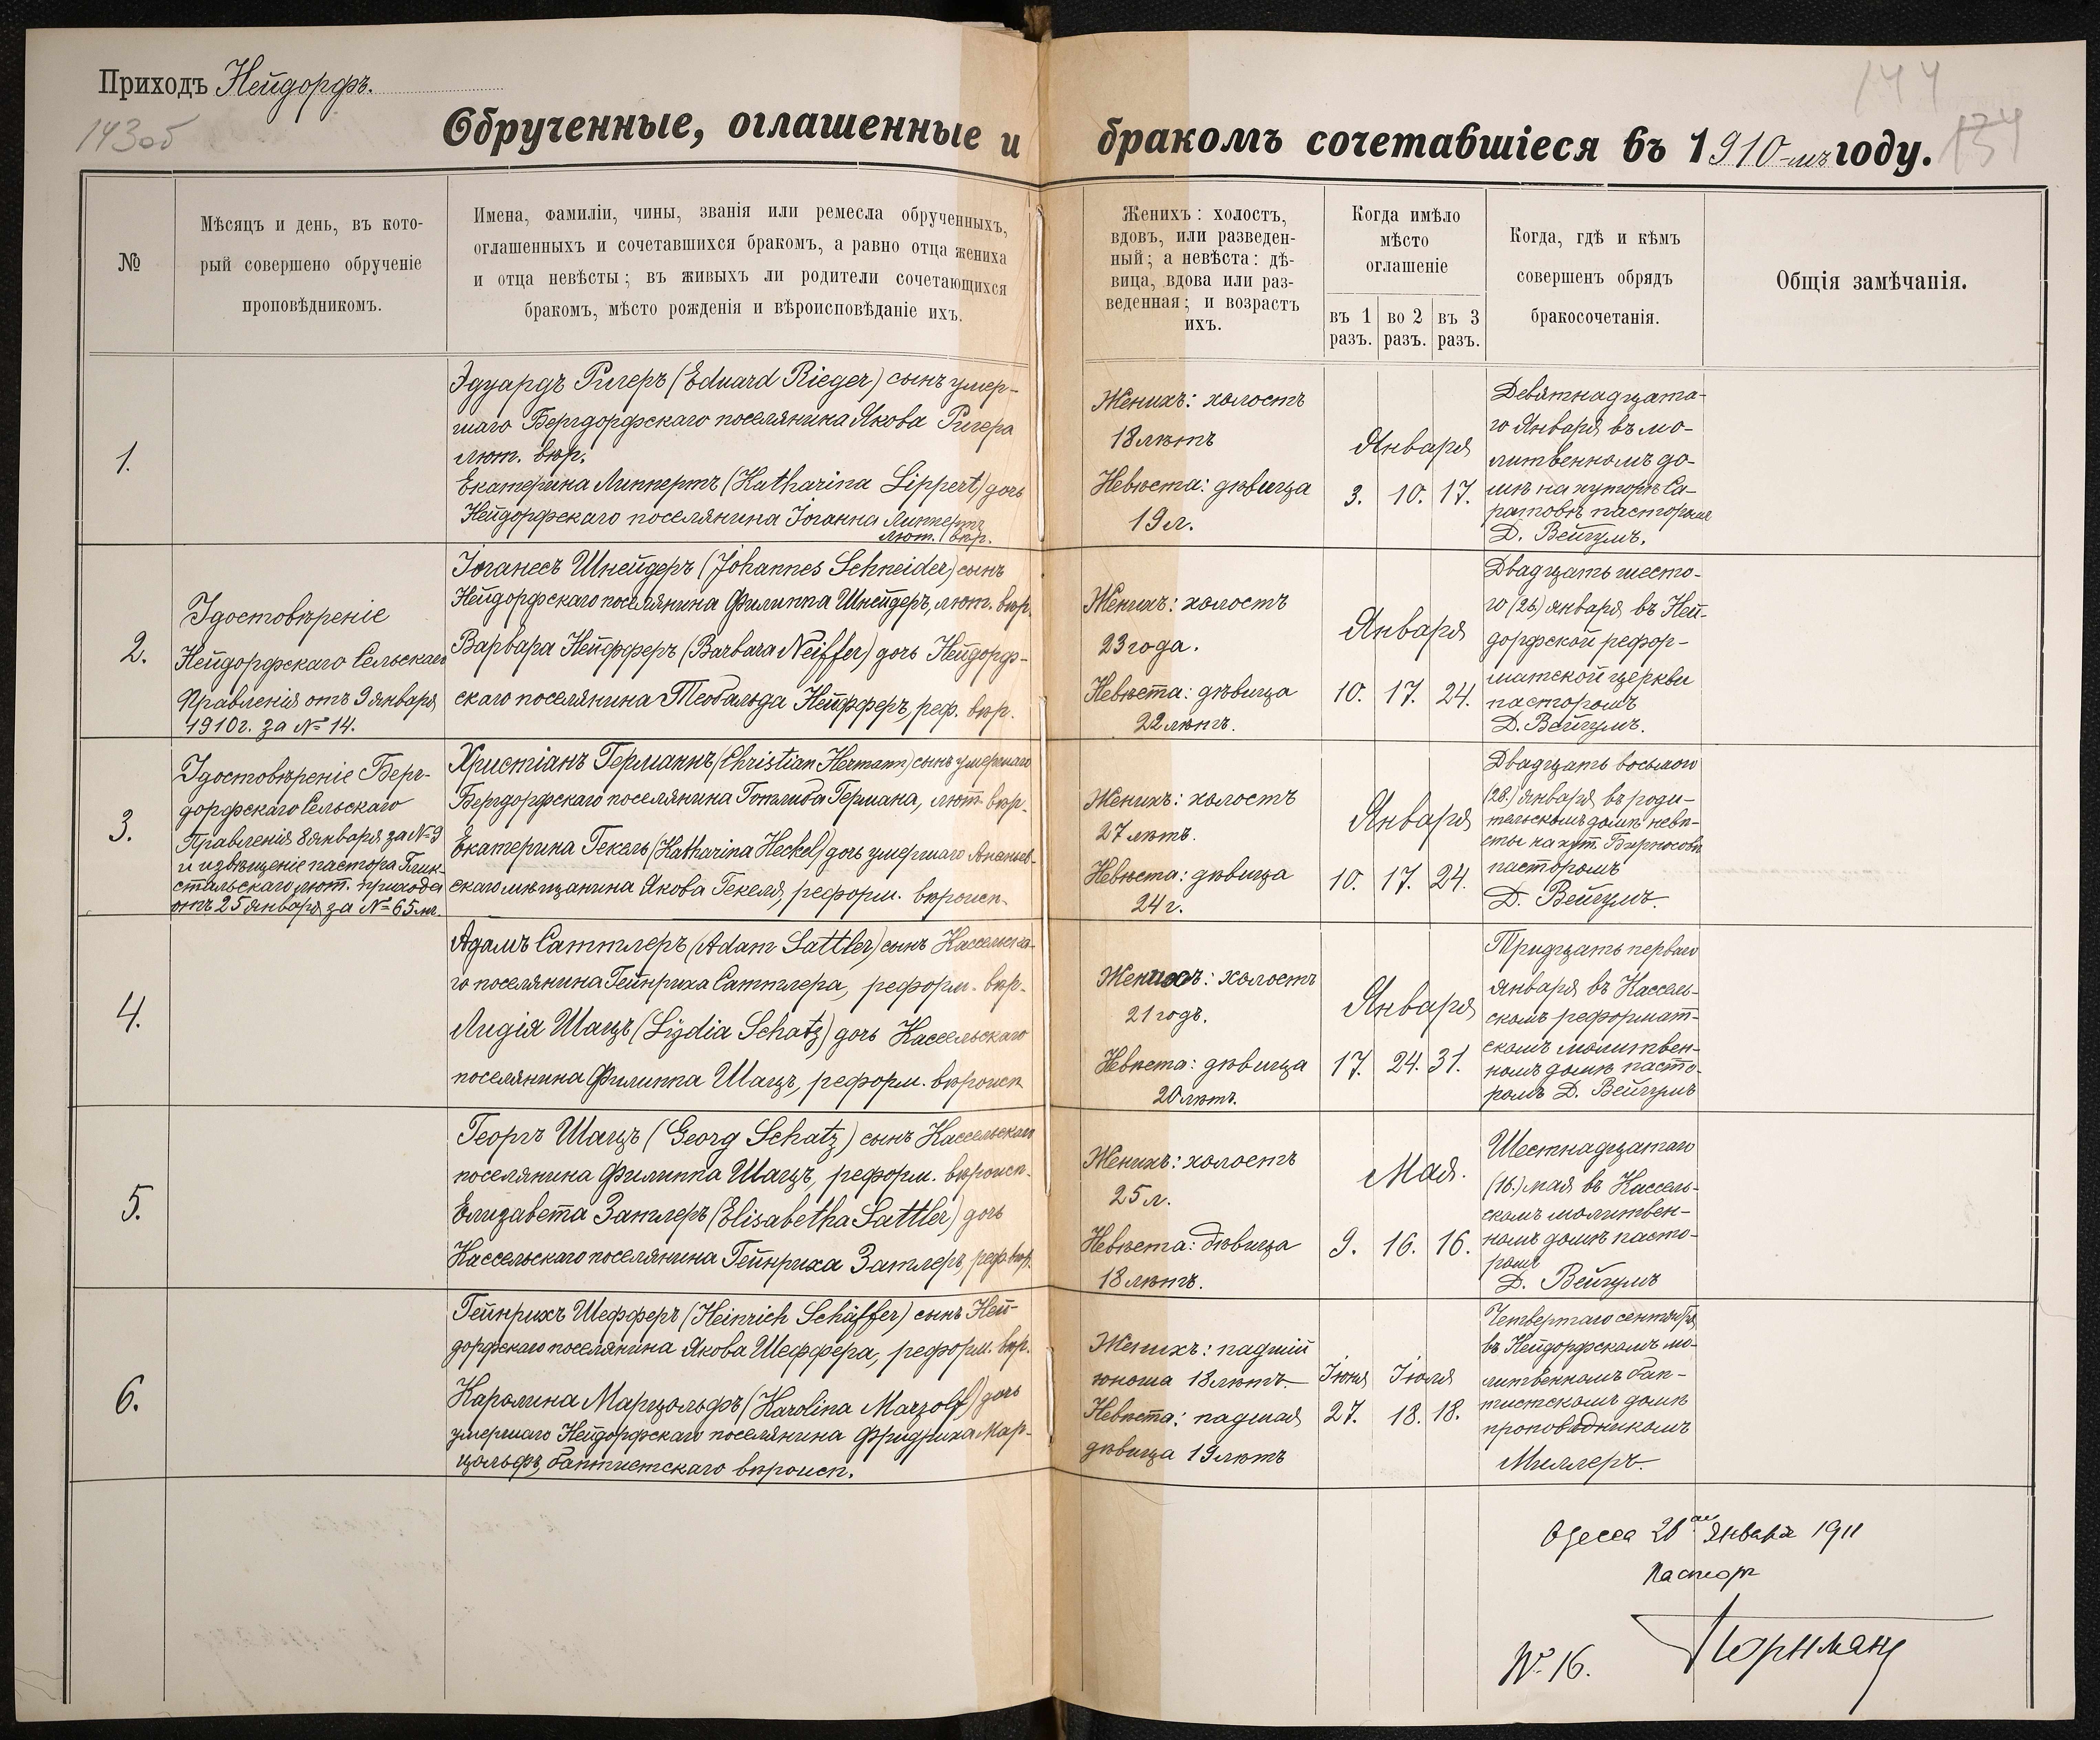 Приходъ Нейдорфъ.
143об
144
134
Обрученные, оглашенные и бракомъ сочетавшіеся въ 1910-мъ году.
№
Мѣсяцъ и день, въ кото-
рый совершено обрученіе
проповѣдникомъ.
Имена, фамиліи, чины, званія или ремесла обрученныхъ,
оглашенныхъ и сочетавшихся бракомъ, а равно отца жениха
и отца невѣсты; въ живыхъ ли родители сочетающихся
бракомъ, мѣсто рожденія и вѣроисповѣданіе ихъ.
Женихъ: холостъ,
вдовъ, или разведен-
ный; а невѣста: дѣ-
вица, вдова или раз-
веденная; и возрастъ
ихъ.
Когда имѣло
мѣсто
оглашеніе
въ 1 разъ.
во 2 разъ.
въ 3 разъ.
Когда, гдѣ и кѣмъ
совершенъ обрядъ
бракосочетанія.
Общія замѣчанія.
1.
Эдуардъ Ригеръ (Eduard Rieger) сынъ умер-
шаго Бергдорфскаго поселянина Якова Ригера
лют. вѣр.
Екатерина Липпертъ (Katharina Lippert) дочь
Нейдорфскаго поселянина Іоганна Липпертъ
лют. вѣр.
Женихъ: холостъ
18 лѣтъ
Невѣста: дѣвица
19 л.
Января
3. 10. 17.
Девятнадцата-
го Января въ мо-
литвенномъ до-
мѣ на хуторѣ Са-
ратовѣ пасторомъ
Д. Вейгумъ.
2.
Удостовѣреніе
Нейдорфскаго Сельскаго
Правленія отъ 9 января
1910 г. за № 14.
Іоганесъ Шнейдеръ (Johannes Schneider) сынъ
Нейдорфскаго поселянина Филиппа Шнейдеръ, лют. вѣр.
Варвара Нейфферъ (Barbara Neiffer) дочь Нейдорф-
скаго поселянина Теобальда Нейфферъ, реф. вѣр.
Женихъ: холостъ
23 года.
Невѣста: дѣвица
22 лѣтъ.
Января
10. 17. 24.
Двадцать шесто-
го (26) января въ Ней-
дорфской рефор-
матской церкви
пасторомъ
Д. Вейгумъ.
3.
Удостовѣреніе Берг-
дорфскаго Сельскаго
Правленія 8 января за № 9
и извѣщеніе пастора Глюк-
стальскаго лют. прихода
отъ 25 января за № 65 мъ.
Христіанъ Германнъ (Christian Hermann) сынъ умершаго
Бергдорфскаго поселянина Готлиба Германа, лют. вѣр.
Екатерина Гекель (Katharina Heckel) дочь умершаго Ананьев-
скаго мѣщанина Якова Гекеля, реформ. вѣроисп.
Женихъ: холостъ
27 лѣтъ.
Невѣста: дѣвица
24 г.
Января
10. 17. 24.
Двадцать восьмого
(28.) января въ роди-
тельскомъ домѣ невѣ-
сты на хут.
пасторомъ
Д. Вейгумъ.
4.
Адамъ Саттлеръ (Adam Sattler) сынъ Кассельска-
го поселянина Гейнриха Саттлера, реформ. вѣр.
Лидія Шацъ (Lydia Schatz) дочь Кассельскаго
поселянина Филиппа Шацъ, реформ. вѣроисп
Женихъ: холостъ
21 годъ.
Невѣста: дѣвица
20 лѣтъ.
Января
17. 24. 31.
Тридцать перваго
января въ Кассель-
скомъ реформат-
скомъ молитвен-
номъ домѣ пасто-
ромъ Д. Вейгумъ
5.
Георгъ Шацъ (Georg Schatz) сынъ Кассельскаго
поселянина Филиппа Шацъ, реформ. вѣроисп.
Елизавета Затлеръ (Elisabetha Sattler) дочь
Кассельскаго поселянина Гейнриха Затлеръ, реф. вѣр.
Женихъ: холостъ
25 л.
Невѣста: дѣвица
18 лѣтъ.
Мая.
9. 16. 16.
Шестнадцатаго
(16.) мая въ Кассель-
скомъ молитвен-
номъ домѣ пасто-
ромъ
Д. Вейгумъ
6.
Гейнрихъ Шефферъ (Heinrich Schäffer) сынъ Ней-
дорфскаго поселянина Якова Шеффера, реформ. вѣр.
Каролина Марцольфъ (Karolina Marzolf) дочь
умершаго Нейдорфскаго поселянина Фридриха Мар-
цольфъ, баптистскаго вѣроисп.
Женихъ: падшій
юноша 18 лѣтъ.
Невѣста: падшая
дѣвица 19 лѣтъ
Іюня Іюля
27. 18. 18.
Четвертаго сентября
въ Нейдорфскомъ мо-
литвенномъ бап-
тистскомъ домѣ
проповѣдникомъ
Миллеръ.
Одесса 28го Января 1911
Пастор
№ 16.